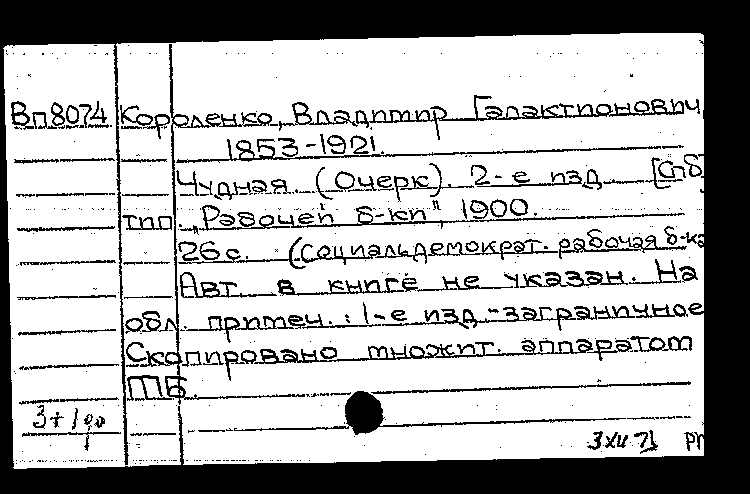 Вп8074 Короленко, Владимир Галактионович,
1853-1921.
Чудная. (Очерк). 2-е изд. [Спб
тип. „Рабочей б-ки", 1900.
26 с. (Социальдемократ. рабочая б-ка
Авт. в книге не указан. На
обл. примеч.: 1-е изд.-заграничное
Скопировано множит. аппаратом
ПБ.
3+1
3 XII 71